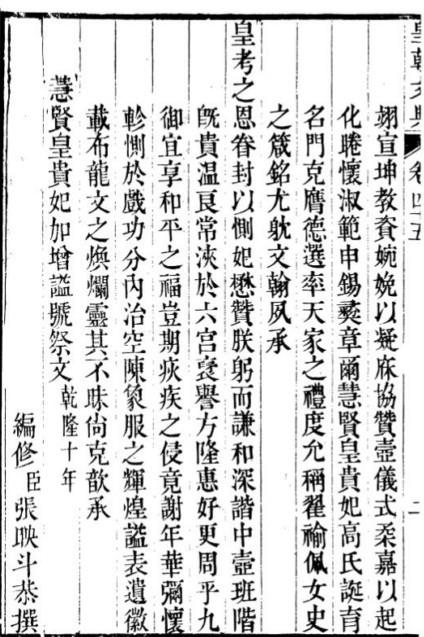 皇朝文典
卷四十五
二
翊宣坤教資婉娩以凝庥協贊壼儀式柔嘉以起
化睠懷淑範申錫彝章爾慧賢皇貴妃高氏誕育
名門克膺德選率天家之禮度允稱翟褕佩女史
之箴銘尤躭文翰夙承
皇考之恩眷封以側妃懋贊朕躬而謙和深諧中壼班階
旣貴溫良常浹於六宮衮譽方隆惠好更周乎九
御宜享和平之福豈期疢疾之侵竟謝年華彌懷
軫惻於戲功分內治空陳象服之輝煌謚表遺徽
載布龍文之煥爛靈其不昧尙克歆承
慧賢皇貴妃加增謚號祭文乾隆十年
編修臣張映斗恭撰